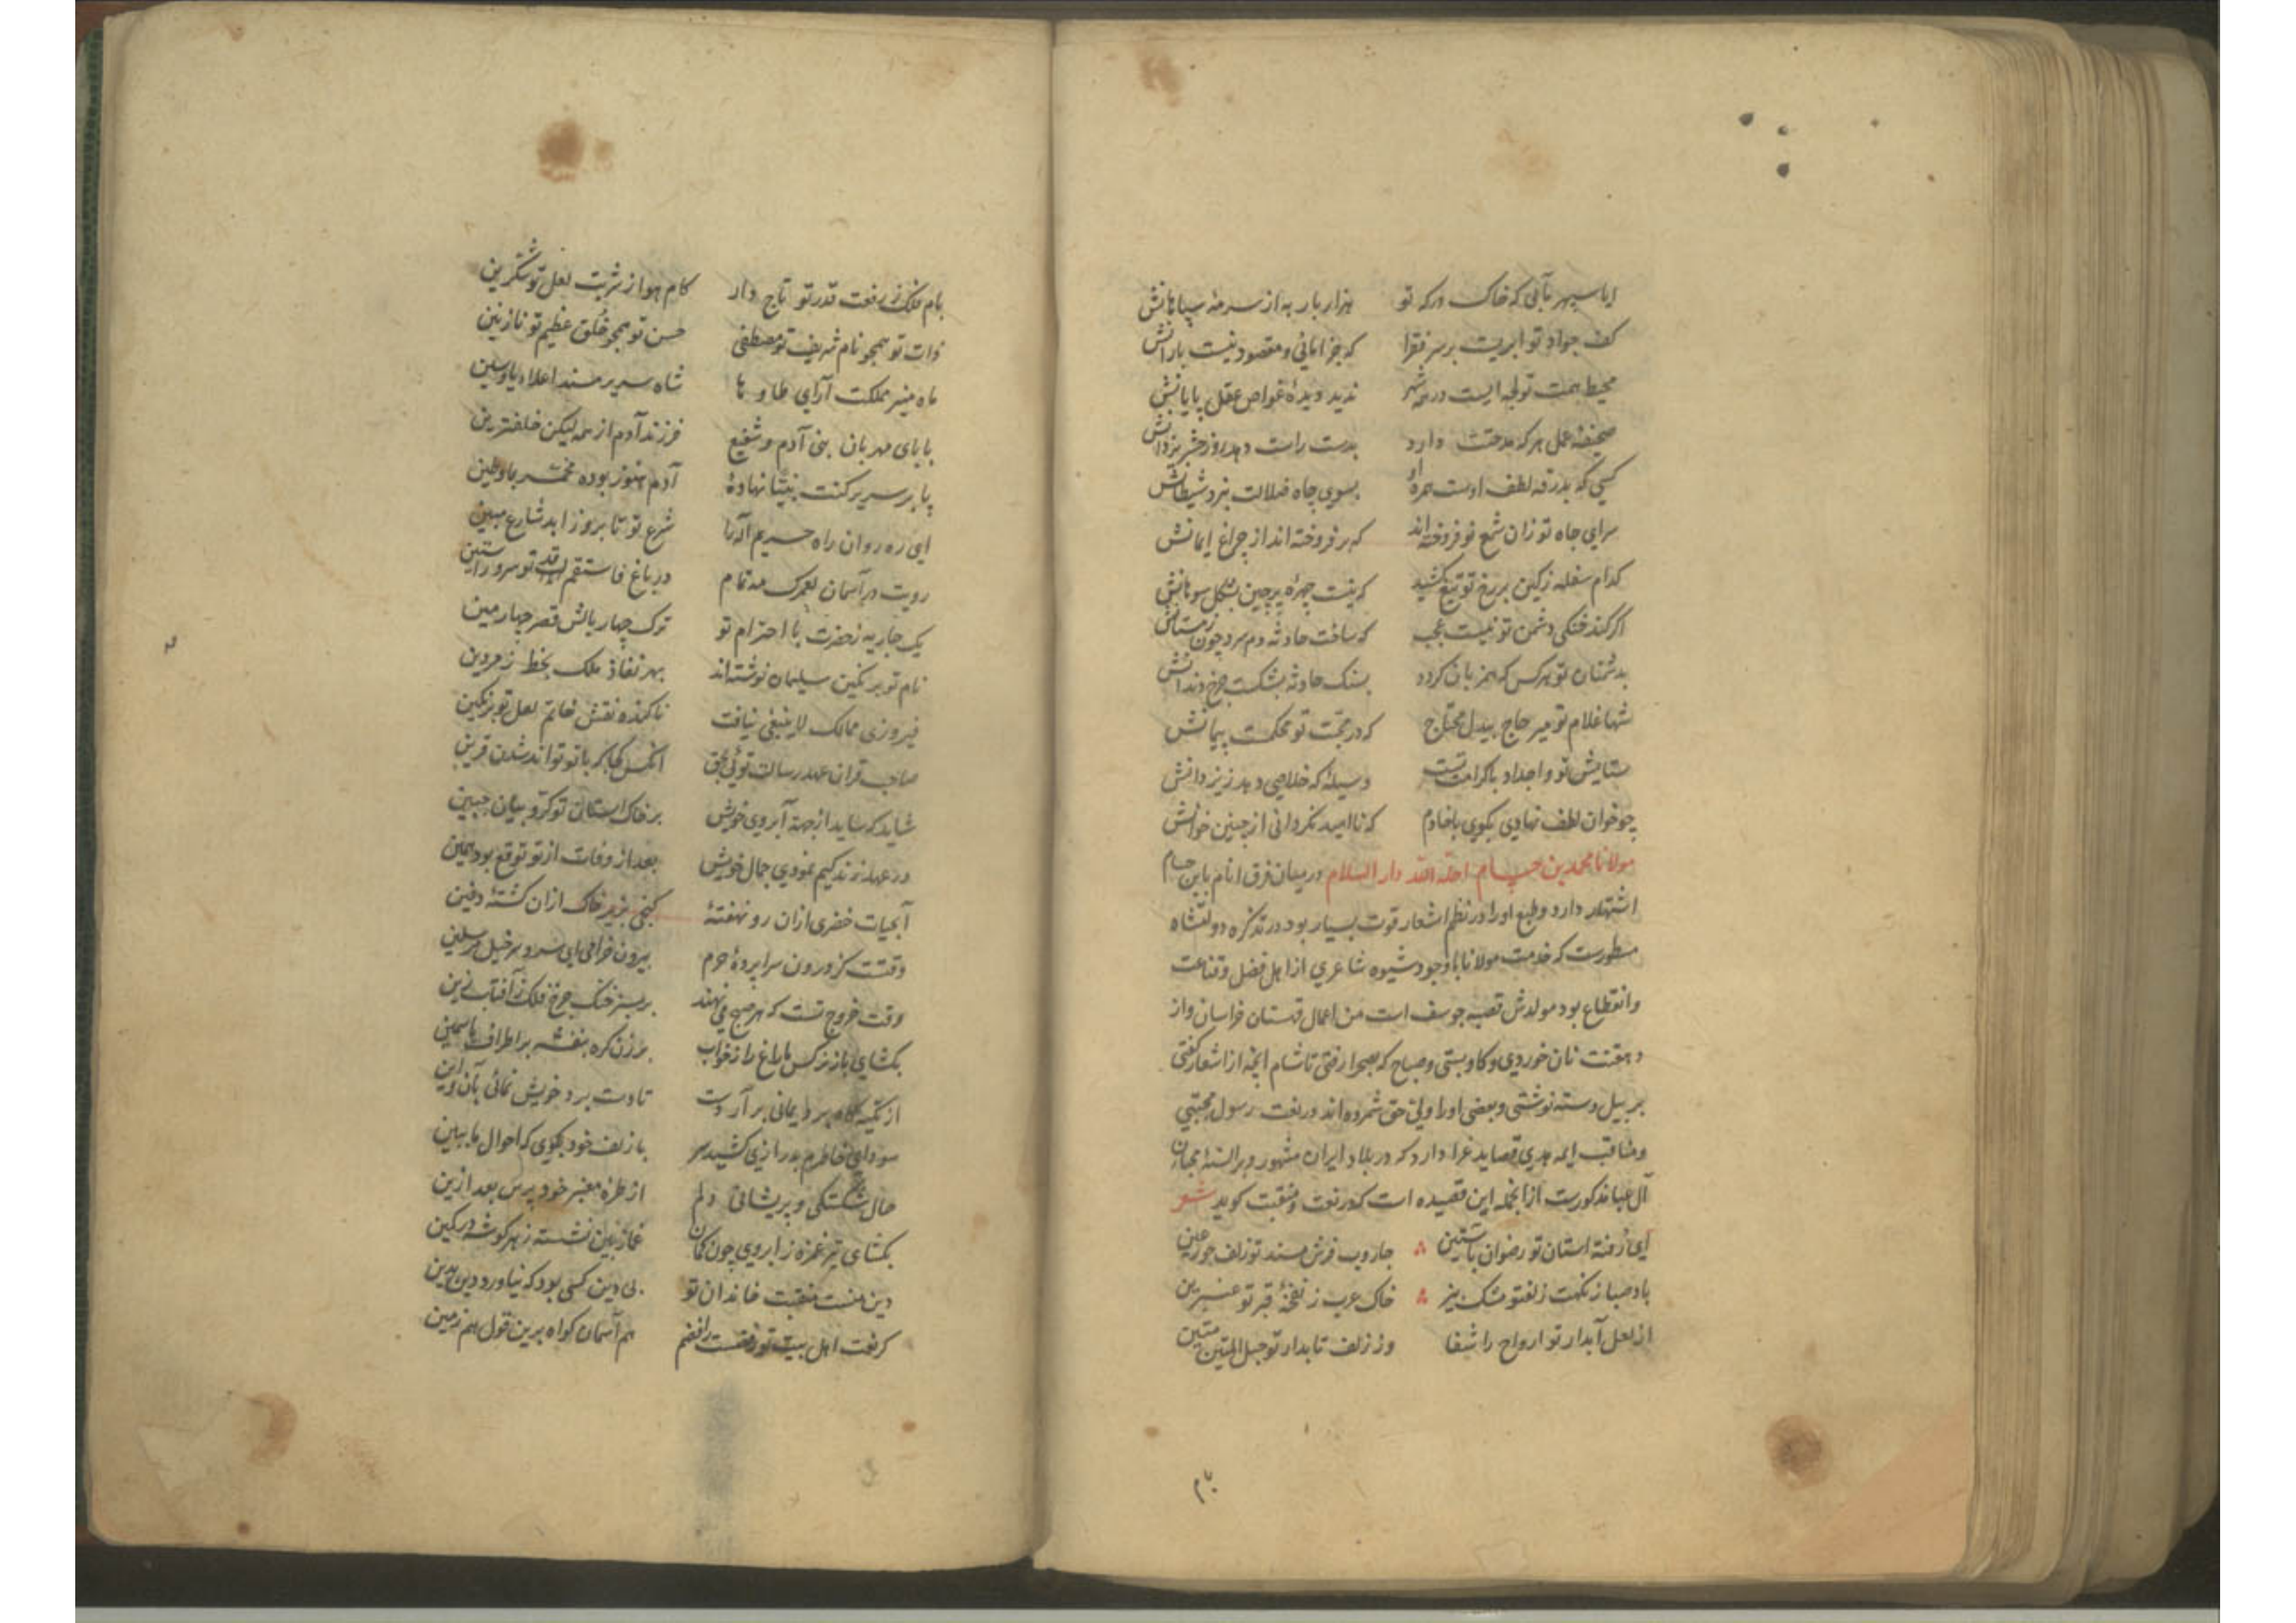 ایا سپهر مآبی که خاک درکه تو هزار بار به از سرمه سپاهانش
کف جواد تو ابریست بر سر فقرا که جز امانی و مقصود نیست بارانش
محیط همت تو لجه ایست در همه شهر ندید دیده غواص عقل پایانش
صحیفه عمل هر که مدحتت دارد بدست راست دهد روز حشر یزدانش
کسی که بدرقه لطف اوست همره او بسوی چاه ضلالت نبرد شیطانش
سرای جاه تو زان شمع نو فروخته‌اند که بر فروخته‌اند از چراغ ایمانش
کدام سفله زکین بر رخ تو تیغ کشید که نیست چهره پر چین بشکل سوهانش
اگر کند خنکی دشمن تو نیست عجب که ساخت حادثه دم سرد چون زمستانش
بدشمنان تو هر کس که همزبان کردد بسنک حادثه بشکست چرخ دندانش
شها غلام تو میر حاج بیدل محتاج که در محبت تو محکمست پیمانش
ستایش تو و اجداد باکرامت تست وسیلهٔ که خلاصی دهد ز نیرانش
چو خوان لطف نهادی بکوی با خادم که ناامید نکردانی از چنین خوانش
مولانا محمد بن حسام احله الله دار السلام در میان فرق انام بابن حسام
اشتهار دارد و طبع او را در نظم اشعار قوت بسیار بود در تذکره دولتشاه
مسطورست که خدمت مولانا با وجود شیوه شاعری از اهل فضل و قناعت
و انقطاع بود مولدش قصبه جوسف است من اعمال قهستان خراسان و از
دهقنت نان خوردی و کاو بستی و صباح که بصحرا رفتی تا شام آنچه از اشعار کفتی
بر بیل دسته نوشتی و بعضی او را ولی حق شمرده‌اند در نعت رسول مجتبی
و مناقب ایمه هدی قصاید غرا دارد که در بلاد ایران مشهور و بر السنهٔ محبان
آل عبا مذکورست از انجمله این قصیده است که در نعت و منقبت کوید شعر
ای رفته آستان تو رضوان بآستین جاروب فرش مسند تو زلف حور عین
باد صبا ز نکهت زلفتو مشک بیز خاک عرب ز نفخهٔ قبر تو عنبرین
از لعل آبدار تو ارواح را شفا وز زلف تابدار تو حبل المتین متین
بام فلک ز رفعت قدر تو تاج دار کام هوا ز شربت لعل تو شکرین
ذات تو همچو نام شریف تو مصطفی حسن تو همچو خلق عظیم تو نازنین
ماه منیر مملکت آرای طا و ها شاه سریر مسند اعلاء یا و سین
بابای مهربان بنی آدم و شفیع فرزند آدم از همه لیکن خلفترین
پا بر سریر کنت نبیا نهادهٔ آدم هنوز بوده مخمر بما و طین
ای ره روان راه حریم اله را شرع تو تا بروز ابد شارع مبین
رویت در آسمان لعمرک مه تمام در باغ فاستقم قد تو سرو راستین
یک جاریه ز حضرت با احترام تو ترک چهار بالش قصر چهارمین
نام تو بر نکین سلیمان نوشته‌اند بهر نفاذ ملک بخط زمردین
فیروزی ممالک لاینبغی نیافت ناکنده نقش خاتم لعل تو بر نکین
صاحب قران عهد رسالت توئی بحق آنکس کجا که با تو تواند شدن قرین
شاید که ساید از جهة آبروی خویش بر خاک آستان تو کروبیان جبین
در عهد زندکیم نمودی جمال خویش بعد از وفات از تو توقع بود همین
آبحیات خضری ازان رو نهفتهٔ کنجی بزیر خاک ازان کشتهٔ دفین
وقتست کز درون سراپردهٔ حرم بیرون خرامی ای سر و سرخیل مرسلین
وقت خروج تست که هر صبح می نهند بر سبز خنک چرخ فلک ز آفتاب زین
بکشای باز نرکس مازاغ را ز خواب برزن کره بنفشه بر اطراف یاسمین
از تکیه کاه برد یمانی بر آر دست تا دست برد خویش نمائی بآن و این
سودای خاطرم بدرازی کشید سر با زلف خود بکوی که احوال ما ببین
حال شکستکی و پریشانی دلم از طره معنبر خود پرس بعد ازین
بکشای تیر غمزه ز ابروی چون کمان غماز بین نشسته ز هر کوشه در کمین
دین منست منقبت خاندان تو بی دین کسی بود که نیاورد دین بدین
کر نعت اهل بیت تو رفضست رافضم هم آسمان کواه برین قول هم زمین